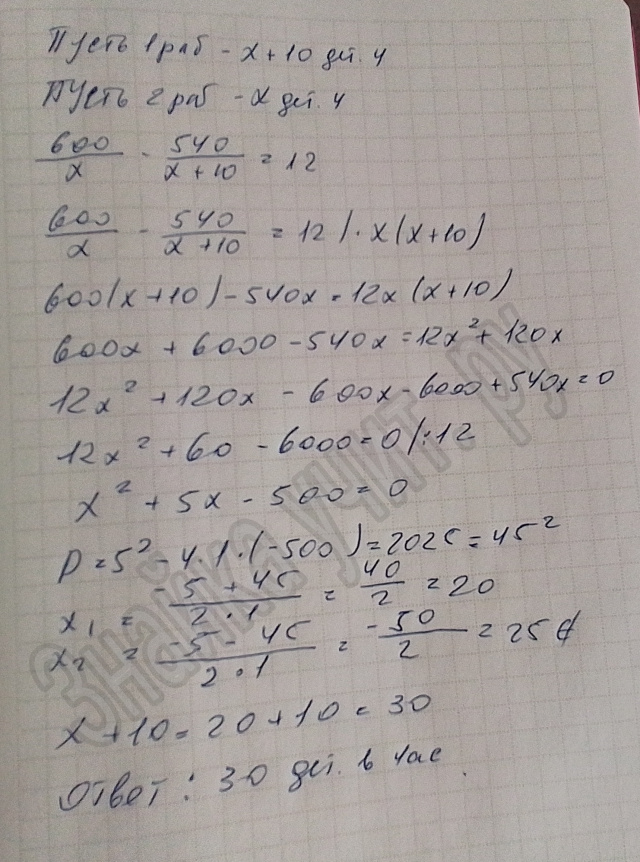 Пусть 1 раб - x + 10 дет. ч
Пусть 2 раб - x дет. ч
600/x - 540/(x + 10) = 12
600/x - 540/(x + 10) = 12 | · x(x+10)
600(x+10) - 540x = 12x (x+10)
600x + 6000 - 540x = 12x² + 120x
12x² + 120x - 600x - 6000 + 540x = 0
12x² + 60 - 6000 = 0 | : 12
x² + 5x - 500 = 0
D = 5² - 4·1·(-500) = 2025 = 45²
x₁ = (-5 + 45)/(2·1) = 40/2 = 20
x₂ = (-5 - 45)/(2·1) = -50/2 = 25 ∉
x + 10 = 20 + 10 = 30
Ответ: 30 дет. в час.
Знайка учит. ру